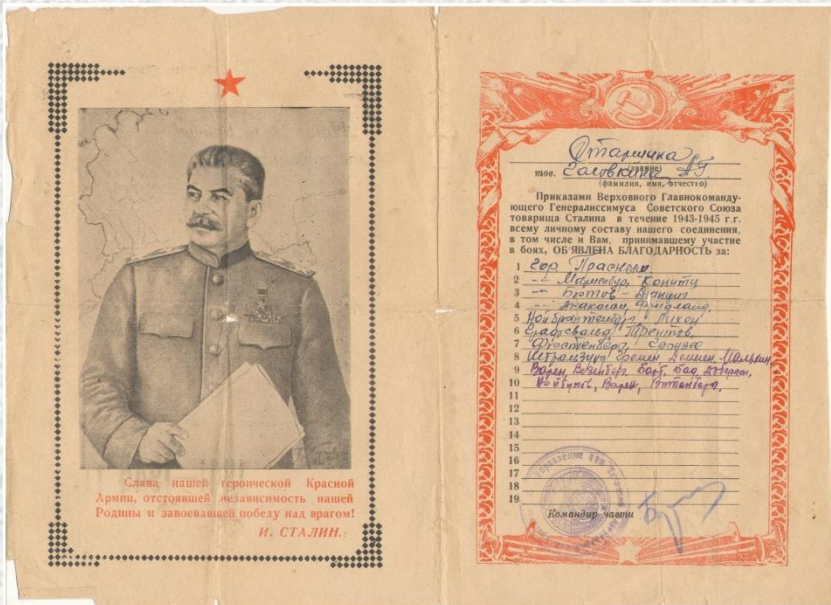 Слава нашей героической Красной
Армии, отстоявшей независимость нашей
Родины и завоевавшей победу над врагом!
И. СТАЛИН.
Старшина
(звание)
тов. Головкина
(фамилия, имя, отчество)
Приказами Верховного Главнокоманду-
ющего Генералиссимуса Советского Союза
товарища Сталина в течение 1943-1945 г.г.
всему личному составу нашего соединения,
в том числе и Вам, принимавшему участие
в боях, ОБ'ЯВЛЕНА БЛАГОДАРНОСТЬ за:
1 Гор.
2 -"- Мариенбург, Конитц
3 -"- Бютов - Данциг
4 -"-
5
6 Трентов,
7
8 Деммен, Мальхин,
9 Варен, Везенберг, Барт, Бад Доберан,
10 Нойбуков, Варен, Виттенберг.
11
12
13
14
15
16
17
18
19
Командир части